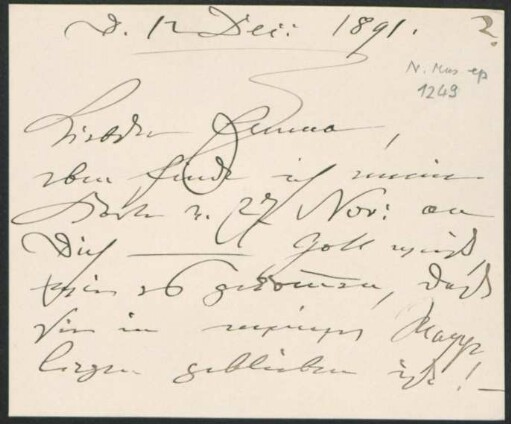 D. 12 Dec: 1891.
2.
N. Mus. ep
1249
Liebster Gemma,
eben finde ich meine
Karte v. 27 Nov: an
Dich — Gott weiß,
wie es gekommen, daß
sie in meiner Mappe
liegen geblieben ist! —